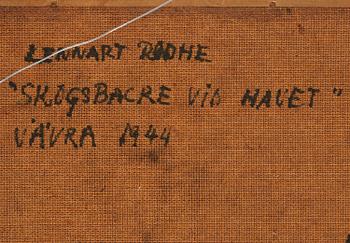 LENNART RODHE
"SKOGSBACKE VID HAVET"
VIÄVRA 1944